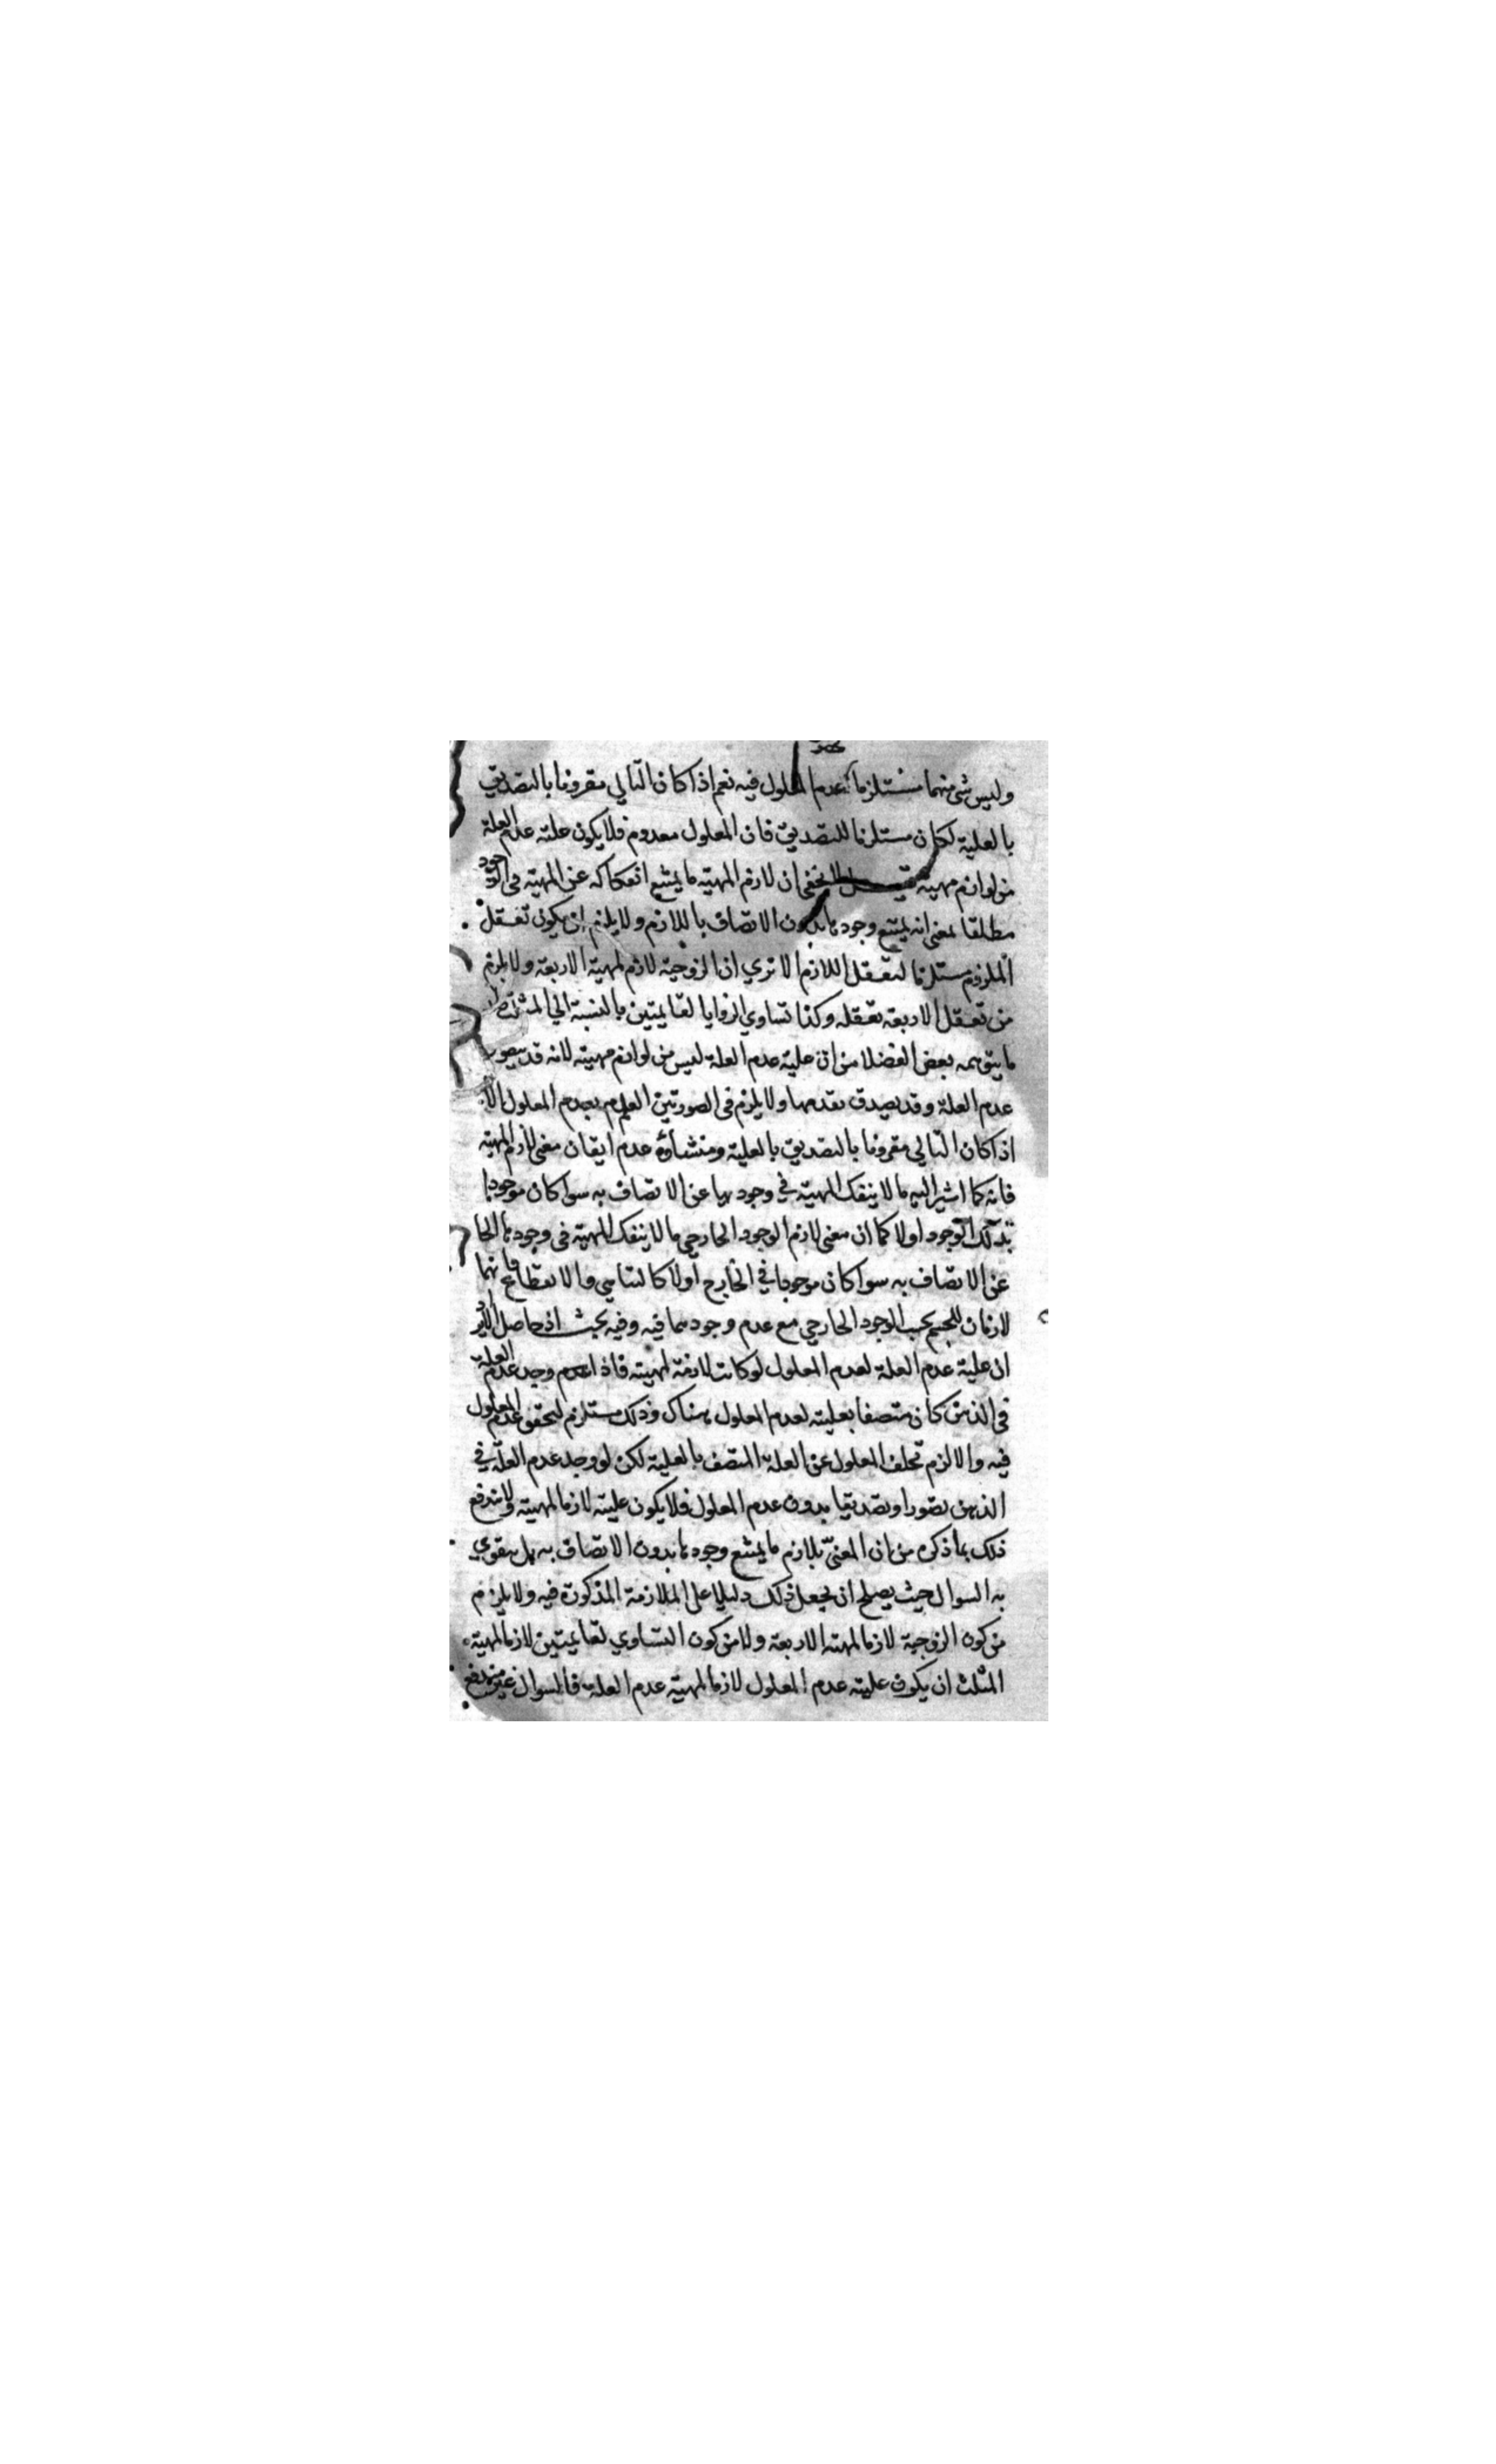 وليس شئ منهما مستلزما لعدم المعلول فيه نعم اذا كان التالي مقرونا بالتصديق
بالعلية لكان مستلزما للتصديق فان المعلول معدوم فلا يكون علية عدم العلة
من لوازم مهيته لا يخفى ان لازم المهية ما يمتنع انفكاكه عن المهية في الوجود
مطلقا بمعنى انه يمتنع وجودها بدون الاتصاف باللازم ولا يلزم ان يكون تعقل
الملزوم مستلزما لتعقل اللازم الا تري ان الزوجية لازم لمهية الاربعة ولا يلزم
من تعقل الاربعة تعقله وكذا تساوي الزوايا لقايمتين بالنسبة الي المثلث
ما يتوهمه بعض الفضلا من ان علية عدم العلة ليس من لوازم مهيته لانه قد يتصور
عدم العلة وقد يصدق بعدمها ولا يلزم في الصورتين العلم بعدم المعلول الا
اذا كان التالي مقرونا بالتصديق بالعلية ومنشاؤه عدم ايقان معنى لازم المهية
فانه كما اشير اليه ما لا ينفك المهية في وجودها عن الاتصاف به سوا كان موجودا
بذلك الوجود اولا كما ان معنى لازم الوجود الخارجي ما لا ينفك المهية في وجودها الخا
عن الاتصاف به سوا كان موجودا في الخارج اولا كالتناهي والانقطاع فانهما
لازمان للجسم بحسب الوجود الخارجي مع عدم وجودهما فيه وفيه بحث اذ حاصل الايراد
ان علية عدم العلة لعدم المعلول لو كانت لازمة لمهيته فاذا وجد عدم العلة
في الذهن كان متصفا بعليته لعدم المعلول هناك وذلك مستلزم لتحقق عدم المعلول
فيه والا لزم تخلف المعلول عن العلة المتصف بالعلية لكن لو وجد عدم العلة في
الذهن تصورا وتصديقا بدون عدم المعلول فلا يكون عليته لازما لمهيته ولا يندفع
ذلك بما ذكره من ان المعنى بلازم ما يمتنع وجودها بدون الاتصاف به بل يتقوي
به السوال حيث يصلح ان يجعل ذلك دليلا على الملازمة المذكورة فيه ولا يلزم
من كون الزوجية لازما لمهية الاربعة ولا من كون التساوي لقايمتين لازما لمهية
المثلث ان يكون علية عدم المعلول لازما لمهية عدم العلة فالسوال غير مندفع